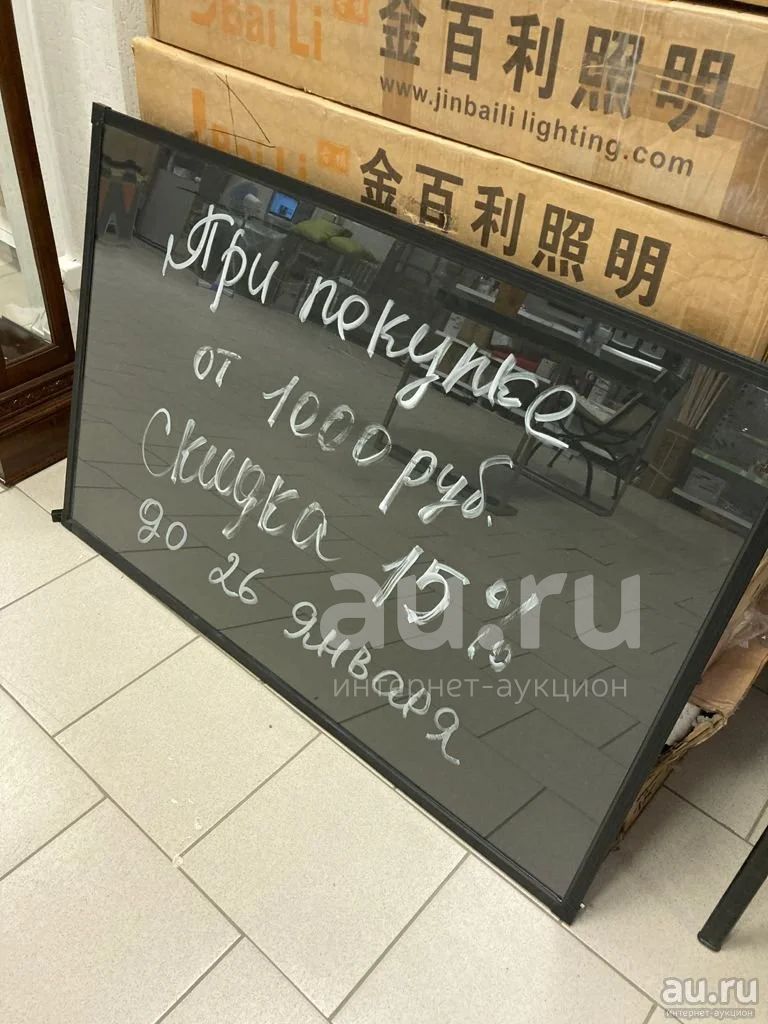 JBaiLi 金百利照明
www.jinbaili lighting.com
JBaiLi 金百利照明
При покупке
от 1000 руб.
скидка 15%
до 26 января
au.ru
интернет-аукцион
au.ru
интернет-аукцион